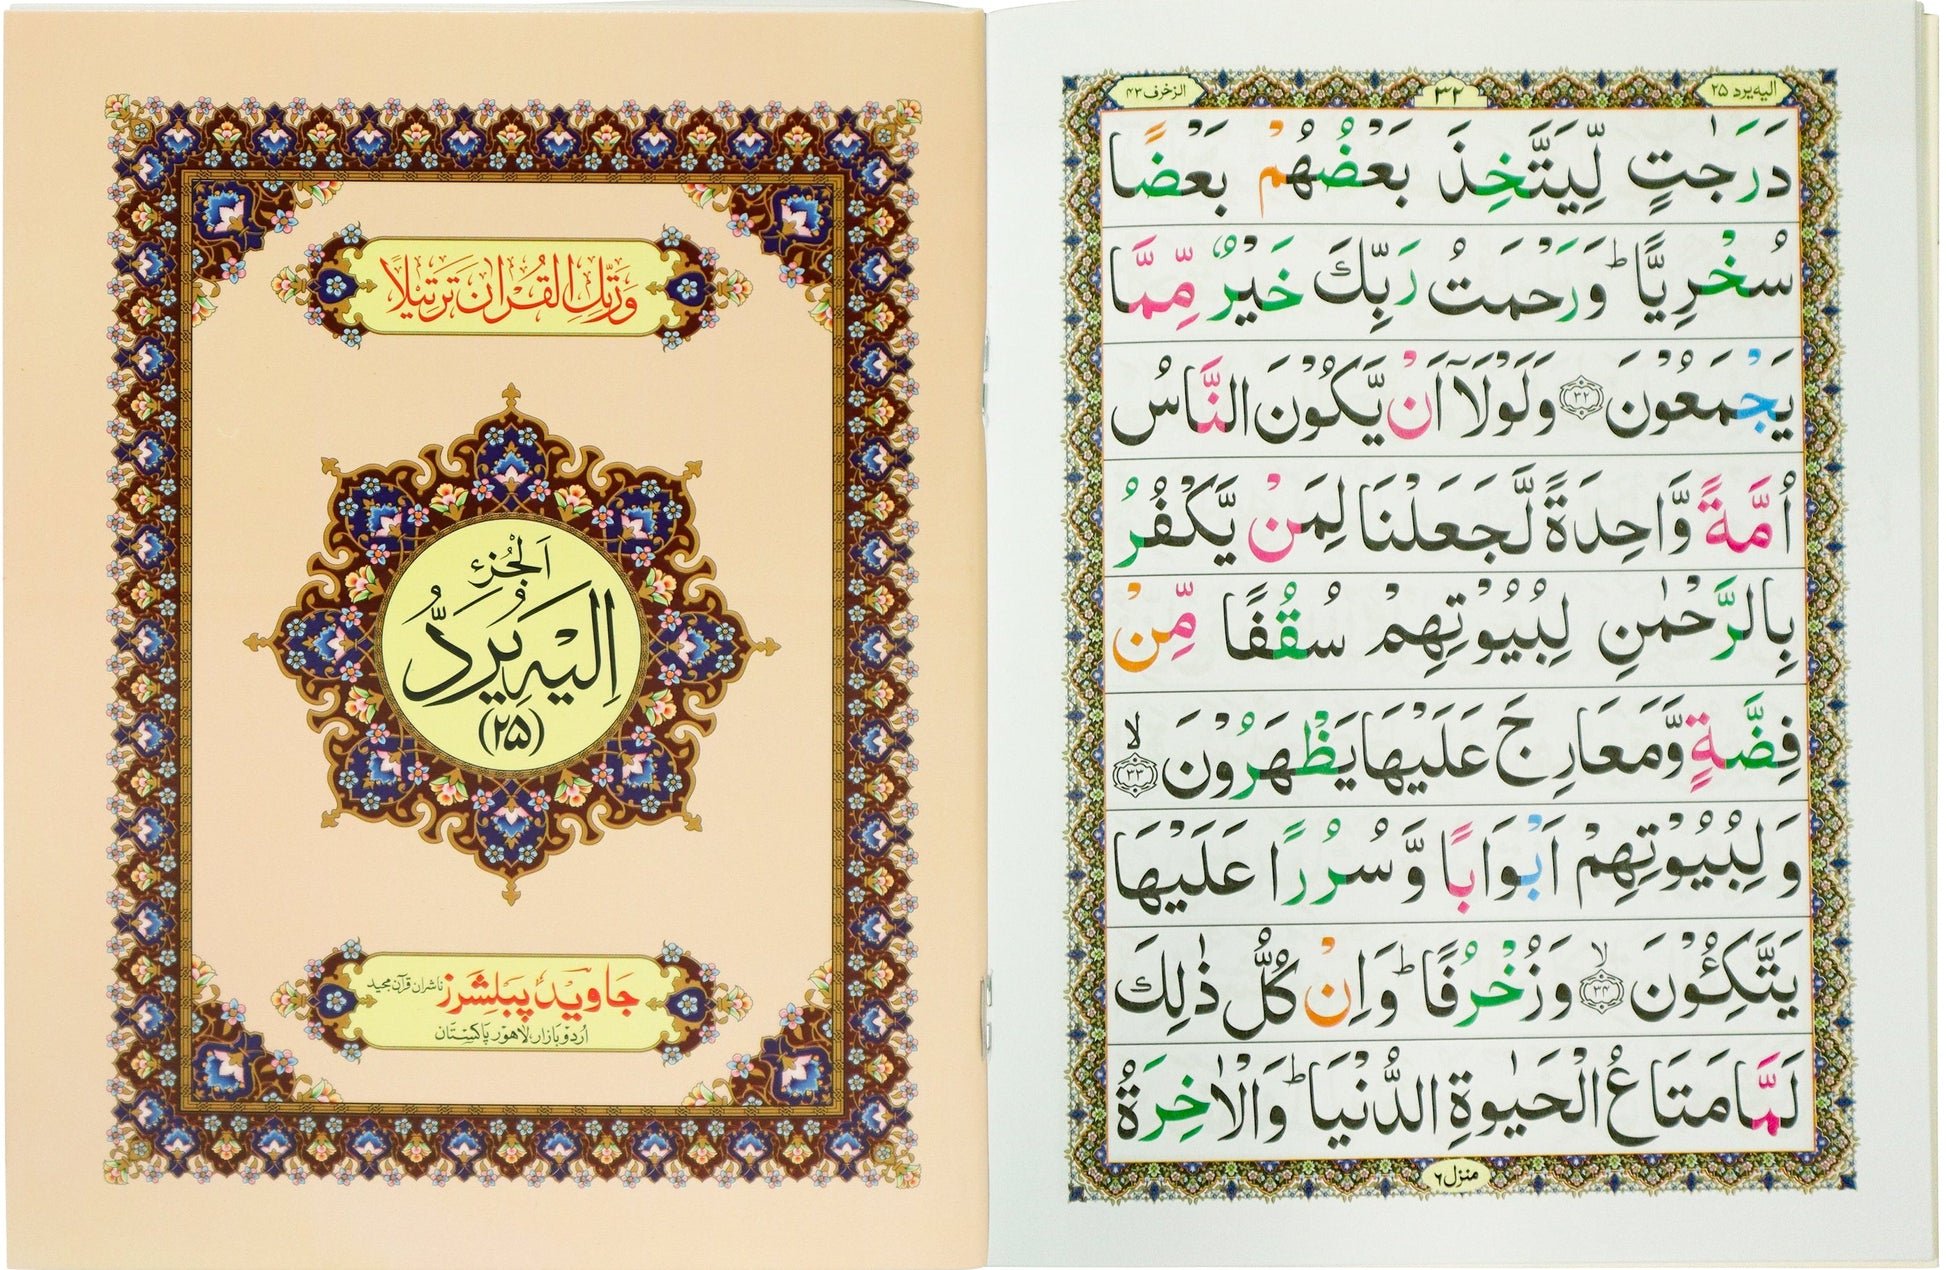 وَرَتِّلِ الْقُرْاٰنَ تَرْتِيْلًا
اَلْجُزْءُ
اِلَيْهِ يُرَدُّ
(٢٥)
جاوید پبلشرز ناشران قرآن مجید
اردو بازار، لاہور پاکستان
الیہ یرد ۲۵ ۳۲ الزخرف ۴۳
دَرَجٰتٍ لِّيَتَّخِذَ بَعْضُهُمْ بَعْضًا
سُخْرِيًّا ؕ وَرَحْمَتُ رَبِّكَ خَيْرٌ مِّمَّا
يَجْمَعُوْنَ ﴿۳۲﴾ وَلَوْلَاۤ اَنْ يَّكُوْنَ النَّاسُ
اُمَّةً وَّاحِدَةً لَّجَعَلْنَا لِمَنْ يَّكْفُرُ
بِالرَّحْمٰنِ لِبُيُوْتِهِمْ سُقُفًا مِّنْ
فِضَّةٍ وَّمَعَارِجَ عَلَيْهَا يَظْهَرُوْنَ ﴿۳۳﴾ ۙ
وَلِبُيُوْتِهِمْ اَبْوَابًا وَّسُرُرًا عَلَيْهَا
يَتَّكِـُٔوْنَ ﴿۳۴﴾ ۙ وَزُخْرُفًا ؕ وَاِنْ كُلُّ ذٰلِكَ
لَمَّا مَتَاعُ الْحَيٰوةِ الدُّنْيَا ؕ وَالْاٰخِرَةُ
منزل ۶